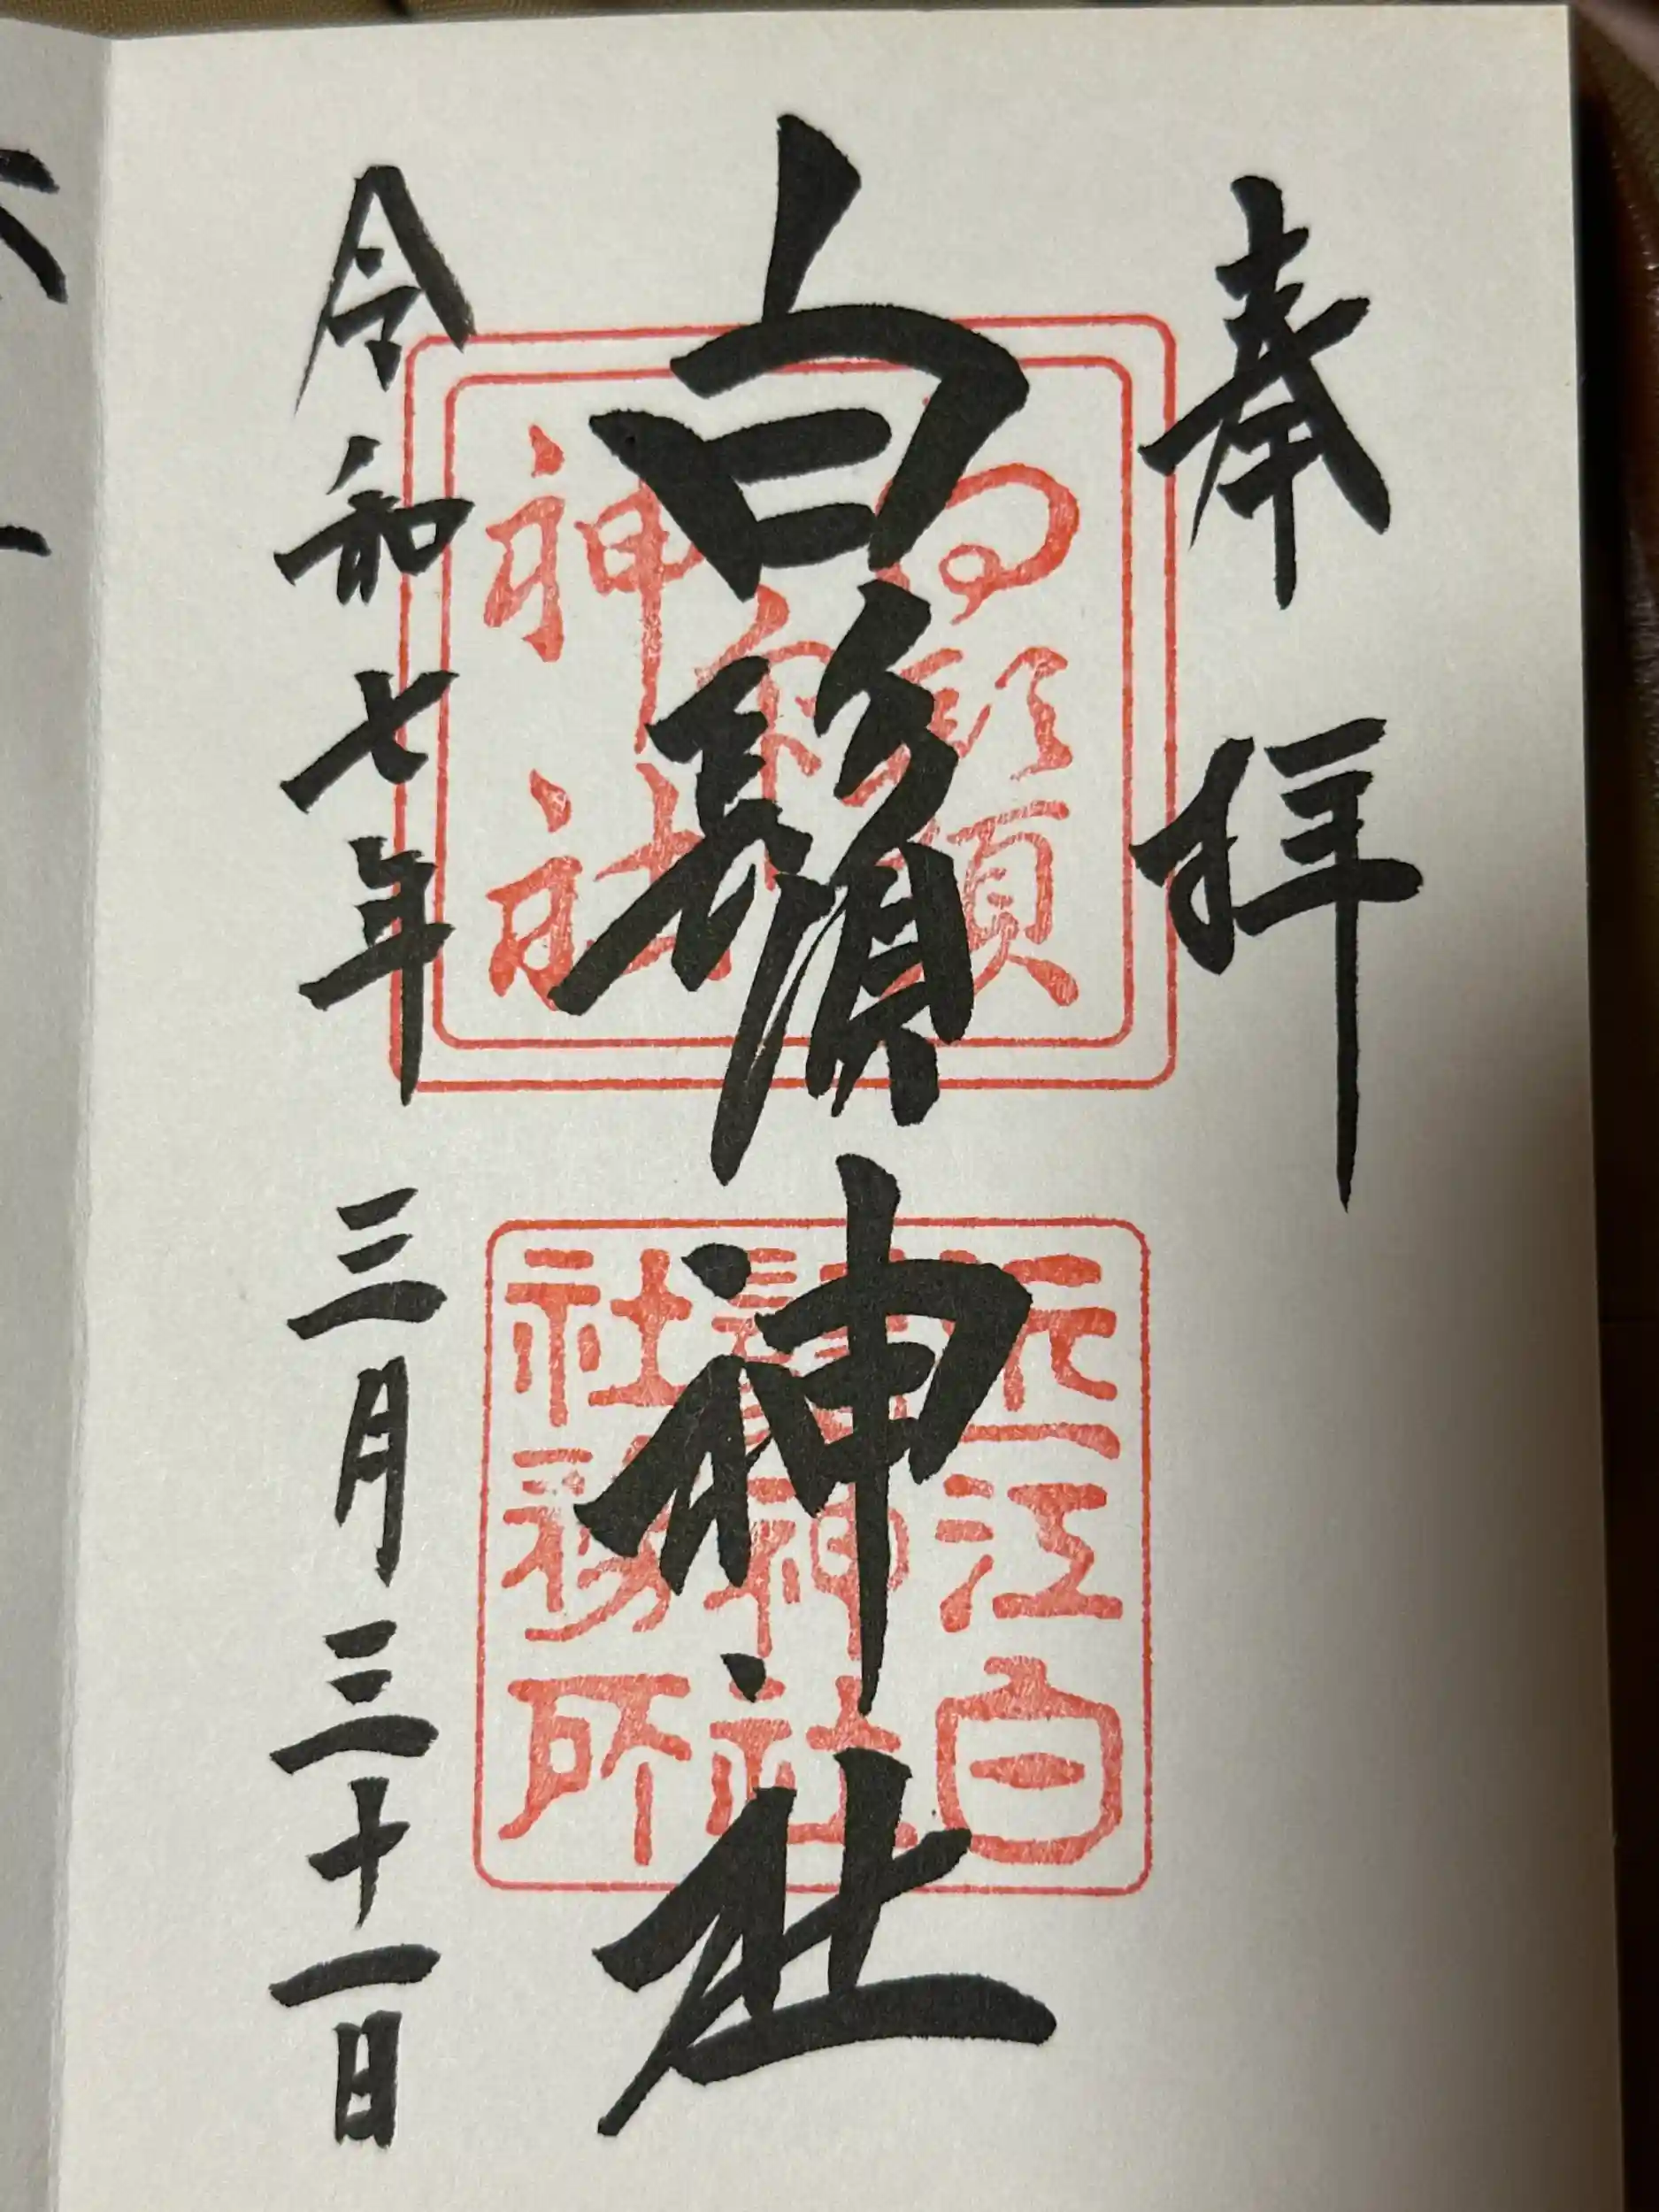 奉拝
白鬚神社
令和七年三月三十一日
近江白
鬚神社
社務所
神社